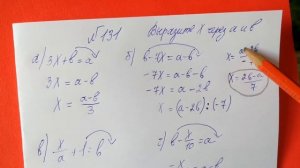 №131 Выразите X через a и b
а) 3X+b=a
3X=a-b
X=\frac{a-b}{3}
б) b-7X=a-b
-7X=a-b-b
-7X=a-2b
X=(a-2b):(-7)
X=\frac{a-2b}{-7}
X=\frac{2b-a}{7}
в) \frac{X}{a}+1=b
г) b-\frac{X}{10}=a